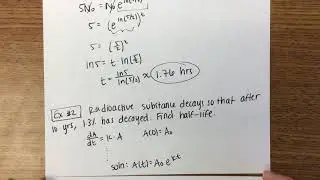 5N₀ = N₀ e^(ln(5/2))t
5 = (e^ln(5/2))^t
5 = (5/2)^t
ln5 = t ln(5/2)
t = ln5/ln(5/2) ≈ 1.76 hrs
Ex #2 Radioactive substance decays so that after
10 yrs, 1.3% has decayed. Find half-life.
dA/dt = k·A A(0)=A₀
⋮
soln: A(t)=A₀e^kt